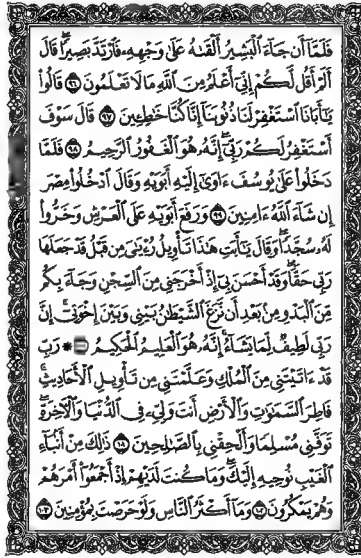 فَلَمَّآ أَن جَآءَ ٱلْبَشِيرُ أَلْقَىٰهُ عَلَىٰ وَجْهِهِۦ فَٱرْتَدَّ بَصِيرًا ۖ قَالَ
أَلَمْ أَقُل لَّكُمْ إِنِّىٓ أَعْلَمُ مِنَ ٱللَّهِ مَا لَا تَعْلَمُونَ ٩٦ قَالُوا۟
يَٰٓأَبَانَا ٱسْتَغْفِرْ لَنَا ذُنُوبَنَآ إِنَّا كُنَّا خَٰطِـِٔينَ ٩٧ قَالَ سَوْفَ
أَسْتَغْفِرُ لَكُمْ رَبِّىٓ ۖ إِنَّهُۥ هُوَ ٱلْغَفُورُ ٱلرَّحِيمُ ٩٨ فَلَمَّا
دَخَلُوا۟ عَلَىٰ يُوسُفَ ءَاوَىٰٓ إِلَيْهِ أَبَوَيْهِ وَقَالَ ٱدْخُلُوا۟ مِصْرَ
إِن شَآءَ ٱللَّهُ ءَامِنِينَ ٩٩ وَرَفَعَ أَبَوَيْهِ عَلَى ٱلْعَرْشِ وَخَرُّوا۟
لَهُۥ سُجَّدًا ۖ وَقَالَ يَٰٓأَبَتِ هَٰذَا تَأْوِيلُ رُءْيَٰىَ مِن قَبْلُ قَدْ جَعَلَهَا
رَبِّى حَقًّا ۖ وَقَدْ أَحْسَنَ بِىٓ إِذْ أَخْرَجَنِى مِنَ ٱلسِّجْنِ وَجَآءَ بِكُم
مِّنَ ٱلْبَدْوِ مِنۢ بَعْدِ أَن نَّزَغَ ٱلشَّيْطَٰنُ بَيْنِى وَبَيْنَ إِخْوَتِىٓ ۚ إِنَّ
رَبِّى لَطِيفٌ لِّمَا يَشَآءُ ۚ إِنَّهُۥ هُوَ ٱلْعَلِيمُ ٱلْحَكِيمُ ۞ رَبِّ
قَدْ ءَاتَيْتَنِى مِنَ ٱلْمُلْكِ وَعَلَّمْتَنِى مِن تَأْوِيلِ ٱلْأَحَادِيثِ ۚ
فَاطِرَ ٱلسَّمَٰوَٰتِ وَٱلْأَرْضِ أَنتَ وَلِىِّۦ فِى ٱلدُّنْيَا وَٱلْءَاخِرَةِ ۖ
تَوَفَّنِى مُسْلِمًا وَأَلْحِقْنِى بِٱلصَّٰلِحِينَ ١٠١ ذَٰلِكَ مِنْ أَنۢبَآءِ
ٱلْغَيْبِ نُوحِيهِ إِلَيْكَ ۖ وَمَا كُنتَ لَدَيْهِمْ إِذْ أَجْمَعُوٓا۟ أَمْرَهُمْ
وَهُمْ يَمْكُرُونَ ١٠٢ وَمَآ أَكْثَرُ ٱلنَّاسِ وَلَوْ حَرَصْتَ بِمُؤْمِنِينَ ١٠٣